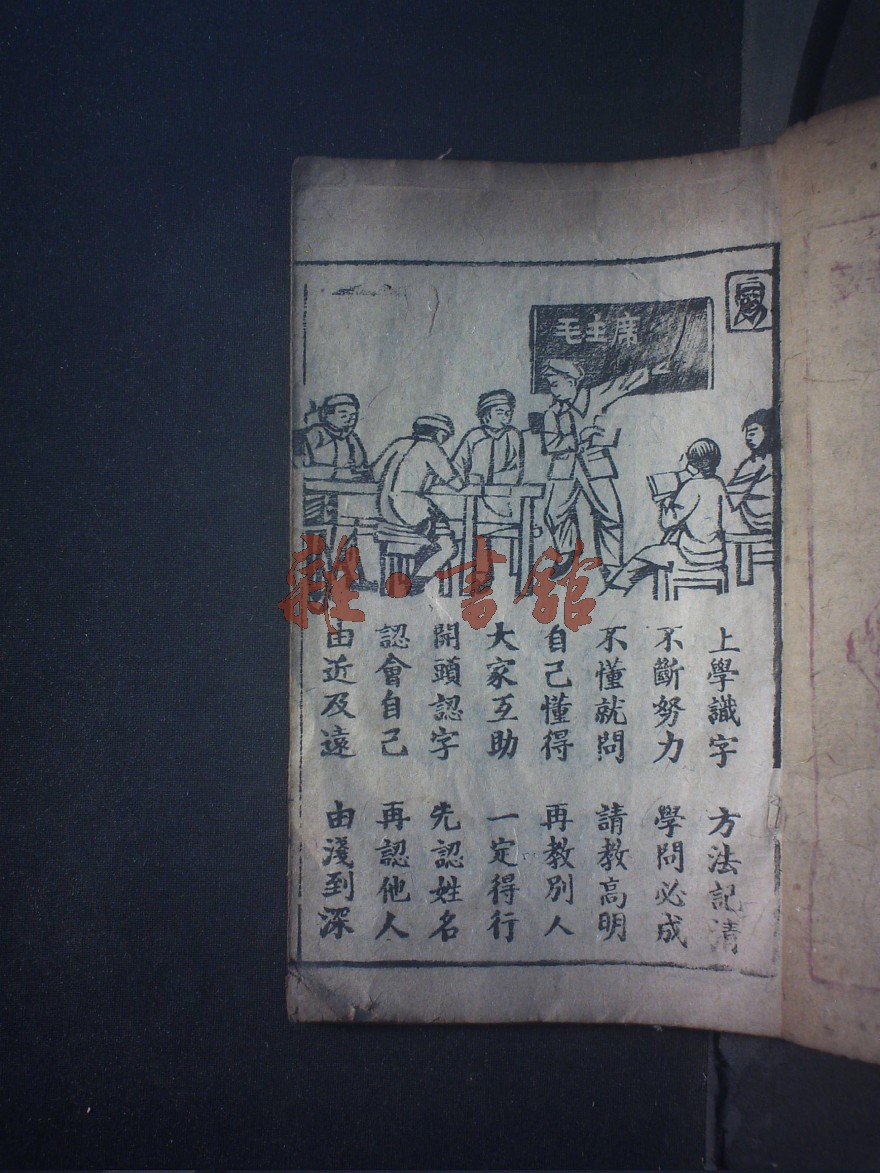 毛主席
雜·書館
上學識字 方法記清
不斷努力 學問必成
不懂就問 請教高明
自己懂得 再教別人
大家互助 一定得行
開頭認字 先認姓名
認會自己 再認他人
由近及遠 由淺到深